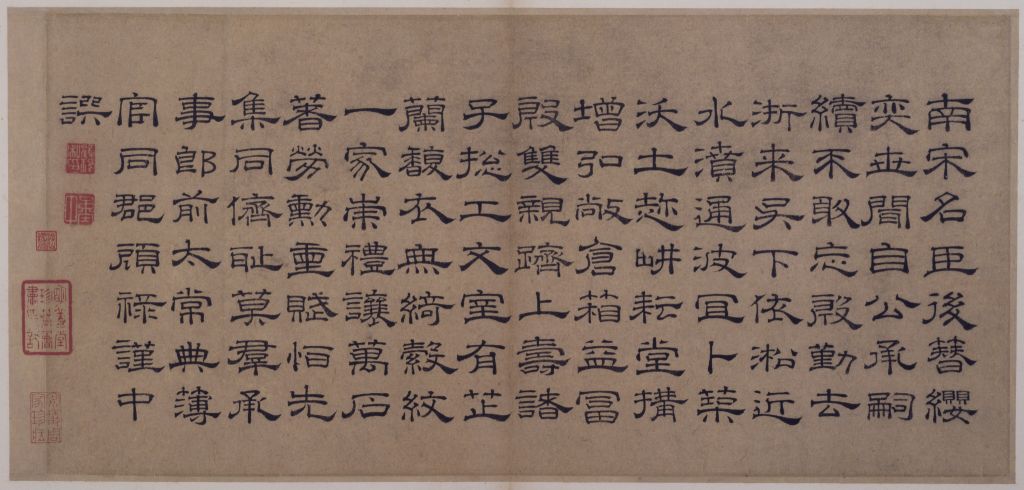 南宋名臣後簪纓
奕世間自公承嗣
續不敢忘殷勤去
浙来吴下依淞近
水濆通波冝卜築
沃土趂畊耘堂搆
增弘敞倉箱益冨
殷雙親躋上壽諸
子捴工文室有芷
蘭馥衣無綺縠紋
一家崇禮讓萬石
著勞勳重賦怕先
集同儕耻莫羣承
事郎前太常典薄
同郡頋祿謹中
譔